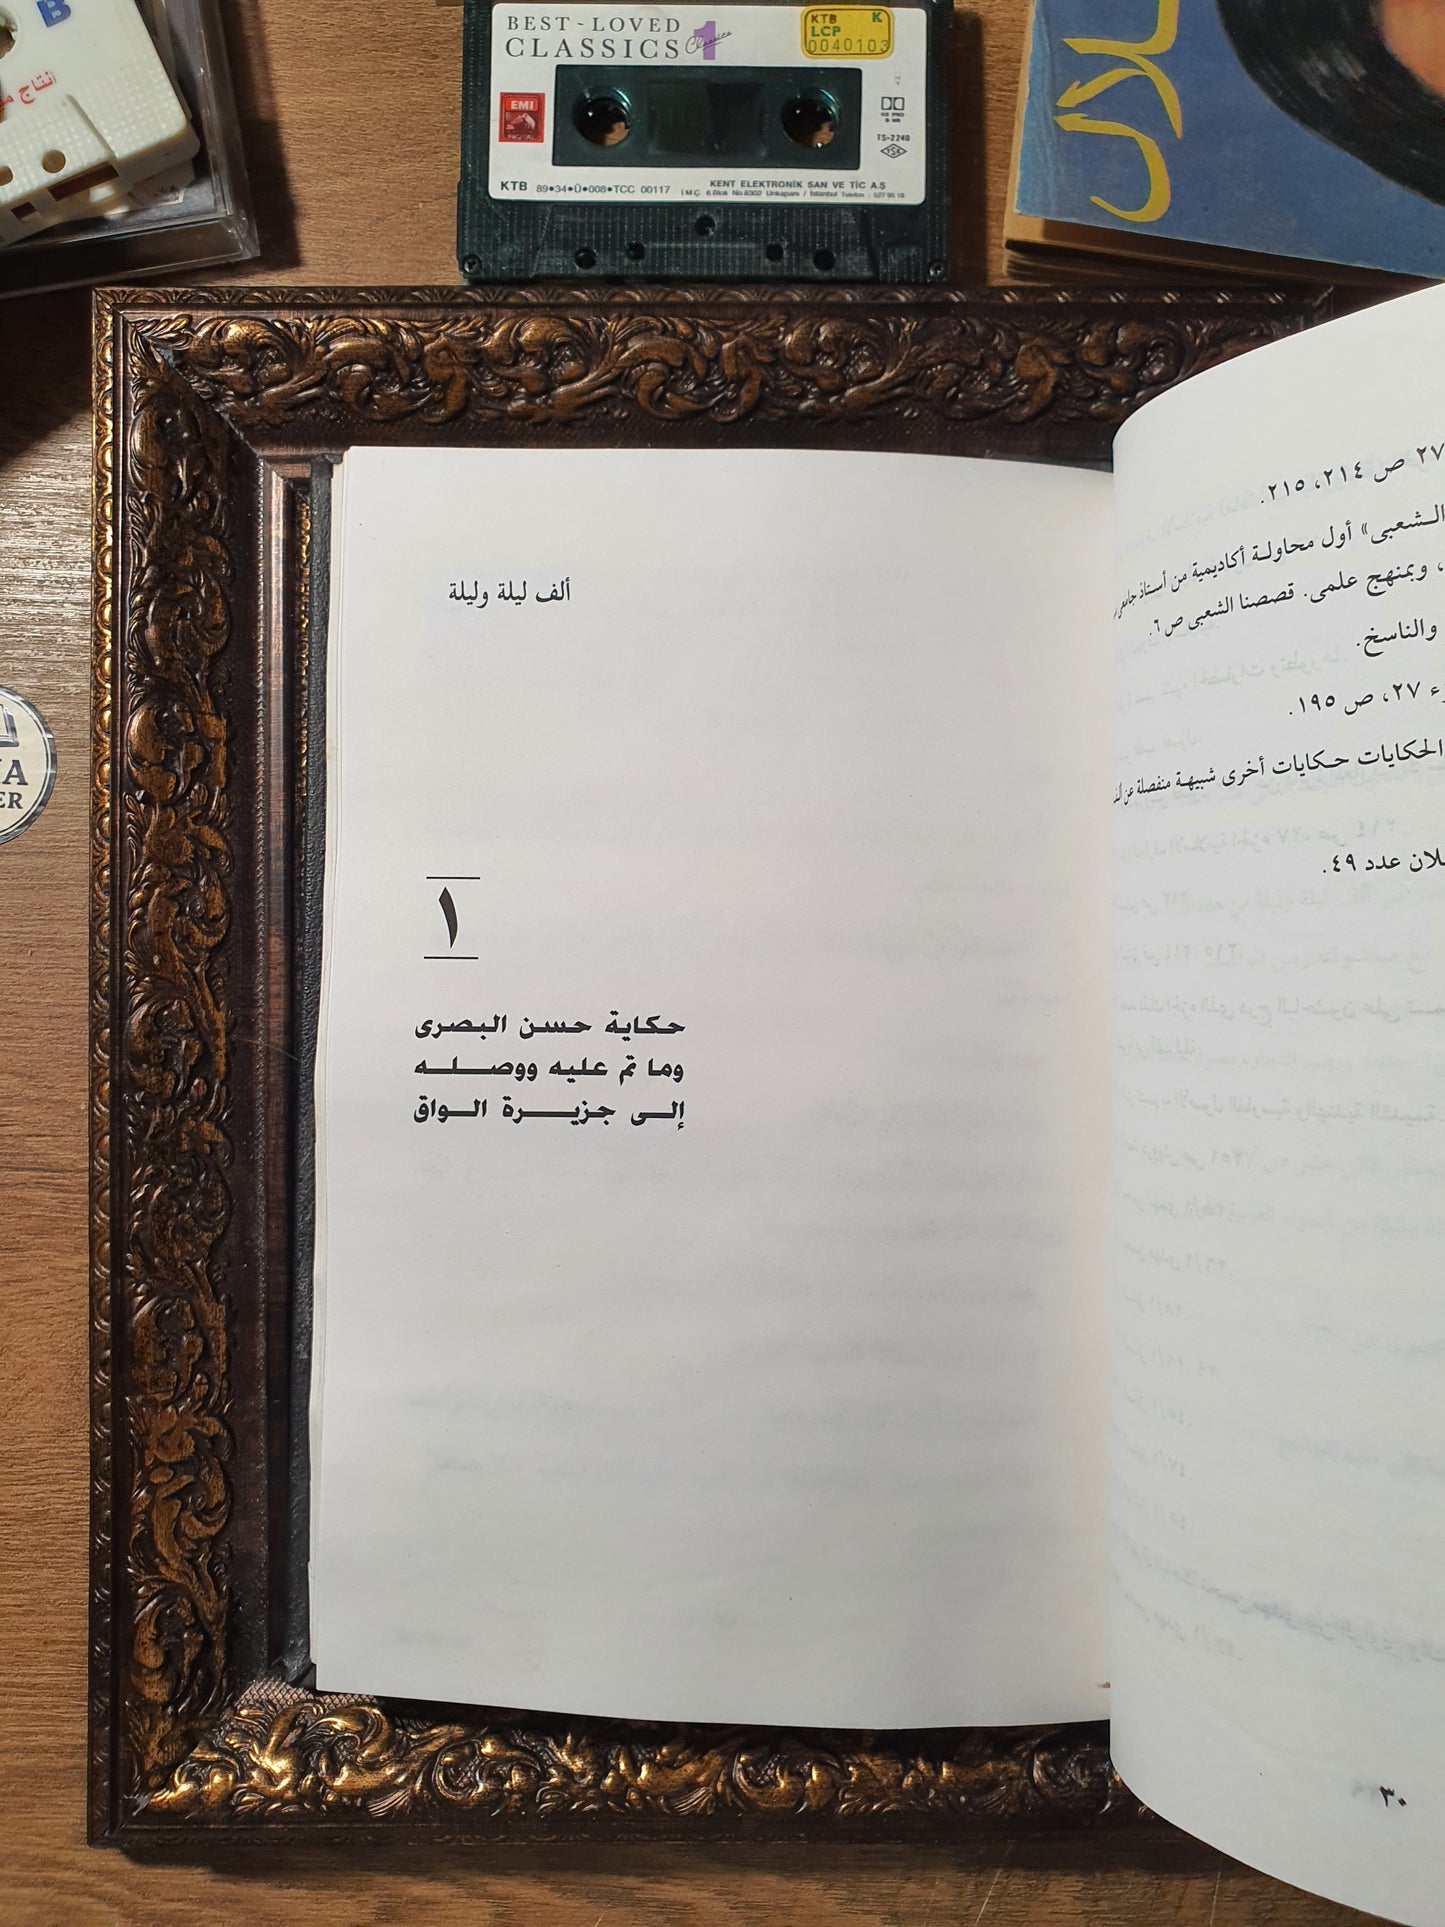 B
انتاج
BEST ~ LOVED
CLASSICS 1
Classics
KTB K
LCP
0040103
EMI
TS-2240
KTB 89•34•Ü•008•TCC 00117
KENT ELEKTRONİK SAN VE TİC A.Ş
İ M Ç. 6 Blok No.6302 Unkapanı / İstanbul Telefon : 527 95 18
ألف ليلة وليلة
١
حكاية حسن البصرى
وما تم عليه ووصله
إلى جزيرة الواق
٢٧ ص ٢١٤، ٢١٥.
الشعبى» أول محاولة أكاديمية من أستاذ جامعى
، وبمنهج علمى. قصصنا الشعبى ص ٦.
والناسخ.
٢٧، ص ١٩٥.
الحكايات حكايات أخرى شبيهة منفصلة عن
عدد ٤٩.
٣٠